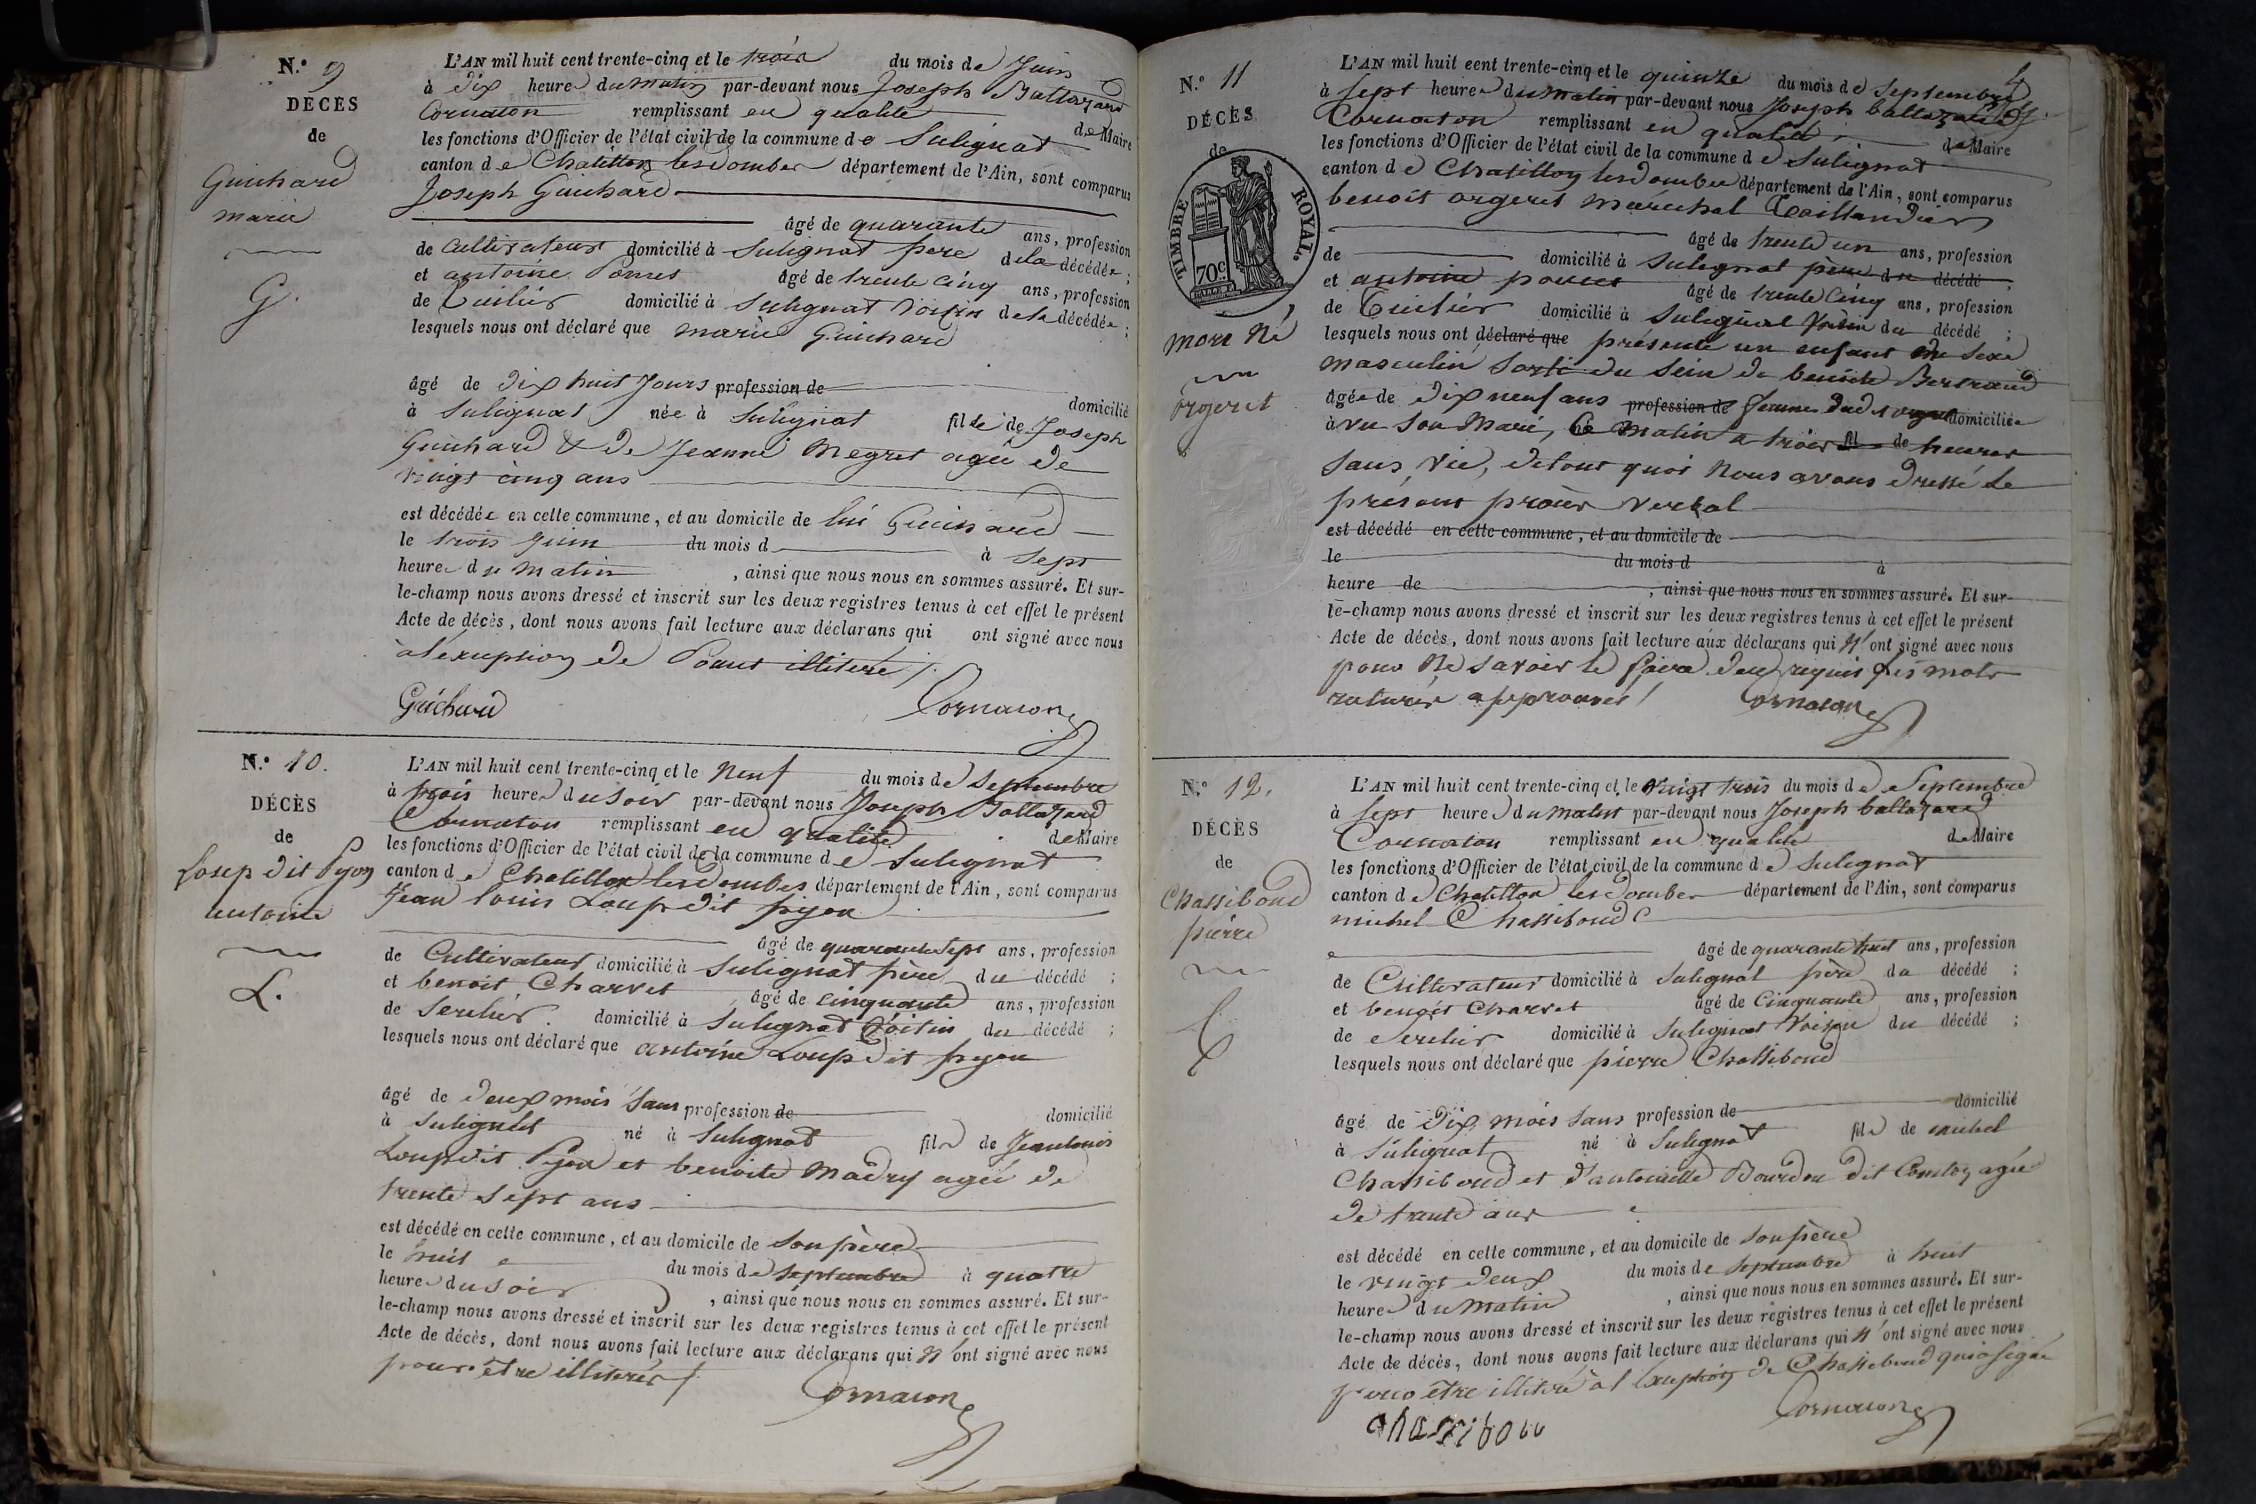 N.° 9
DÉCÈS
de
Guichard
marie
G.
L'AN mil huit cent trente-cinq et le trois du mois de Juin
à dix heures du matin par-devant nous Joseph Baltazard
Cornaton remplissant en qualité de Maire
les fonctions d'Officier de l'état civil de la commune de Sulignat
canton de Chatillon les dombes département de l'Ain, sont comparus
Joseph Guichard
âgé de quarante ans, profession
de Cultivateur domicilié à Sulignat père de la décédée ;
et antoine Ponus âgé de trente cinq ans, profession
de Tuilier domicilié à Sulignat Voisin de la décédée ;
lesquels nous ont déclaré que marie Guichard
âgé de dix huit Jours profession de domicilié
à Sulignat née à Sulignat fille de Joseph
Guichard & de Jeanne Megret agée de
vingt cinq ans
est décédée en cette commune, et au domicile de lui Guichard
le trois Juin du mois d à sept
heures du matin , ainsi que nous nous en sommes assuré. Et sur-
le-champ nous avons dressé et inscrit sur les deux registres tenus à cet effet le présent
Acte de décès, dont nous avons fait lecture aux déclarans qui ont signé avec nous
à l'exception de illiteré
Guichard Cornaton
N.° 10.
DÉCÈS
de
Loup dit Pijon
antoine
L.
L'AN mil huit cent trente-cinq et le neuf du mois de Septembre
à trois heures du soir par-devant nous Joseph Baltazard
Cornaton remplissant en qualité de Maire
les fonctions d'Officier de l'état civil de la commune de Sulignat
canton de Chatillon les Dombes département de l'Ain, sont comparus
Jean louis Loup dit pijon
âgé de quarante sept ans, profession
de Cultivateur domicilié à Sulignat père du décédé ;
et benoit Charvet âgé de cinquante ans, profession
de domicilié à Sulignat Voisin du décédé ;
lesquels nous ont déclaré que antoine Loup dit pijon
âgé de deux mois sans profession de domicilié
à Sulignat né à Sulignat fils de Jean louis
Loup dit Pijon et benoite agée de
trente sept ans
est décédé en cette commune, et au domicile de son père
le huit du mois de septembre à quatre
heures du soir , ainsi que nous nous en sommes assuré. Et sur-
le-champ nous avons dressé et inscrit sur les deux registres tenus à cet effet le présent
Acte de décès, dont nous avons fait lecture aux déclarans qui n'ont signé avec nous
pour être illiterés
Cornaton
4
N.° 11
DÉCÈS
de
TIMBRE ROYAL
70c
mort Né
orgeret
L'AN mil huit cent trente-cinq et le quinze du mois de Septembre
à sept heures du matin par-devant nous Joseph baltazard
Cornaton remplissant en qualité de Maire
les fonctions d'Officier de l'état civil de la commune de Sulignat
canton de Chatillon les dombes département de l'Ain, sont comparus
benoit orgeret marechal Taillandier
âgé de trente un ans, profession
de domicilié à Sulignat père du décédé ;
et antoine âgé de trente cinq ans, profession
de Tuilier domicilié à Sulignat Voisin du décédé ;
lesquels nous ont déclaré que présenté un enfant du Sexe
masculin sorti du sein de benoite Bertrand
âgée de dix neuf ans profession de femme dud. orgeret domiciliée
à vu son Mari, Ce matin à trois fil de heures
sans vie, de tout quoi nous avons dressé le
présent procès verbal
est décédé en cette commune, et au domicile de
le du mois d à
heure de , ainsi que nous nous en sommes assuré. Et sur-
le-champ nous avons dressé et inscrit sur les deux registres tenus à cet effet le présent
Acte de décès, dont nous avons fait lecture aux déclarans qui n'ont signé avec nous
pour ne savoir le faire de ce requis les mots
raturés approuvés Cornaton
N.° 12.
DÉCÈS
de
Chassiboud
pierre
C
L'AN mil huit cent trente-cinq et le vingt trois du mois de Septembre
à sept heures du matin par-devant nous Joseph baltazard
Cornaton remplissant en qualité de Maire
les fonctions d'Officier de l'état civil de la commune de Sulignat
canton de Chatillon les dombes département de l'Ain, sont comparus
michel Chassiboud
âgé de quarante huit ans, profession
de Cultivateur domicilié à Sulignat père du décédé ;
et benoit Charvet âgé de Cinquante ans, profession
de domicilié à Sulignat Voisin du décédé ;
lesquels nous ont déclaré que pierre Chassiboud
âgé de dix mois sans profession de domicilié
à Sulignat né à Sulignat fils de michel
Chassiboud et d'antoinette Bourdon dit agée
de trente ans
est décédé en cette commune, et au domicile de son père
le vingt deux du mois de septembre à huit
heures du matin , ainsi que nous nous en sommes assuré. Et sur-
le-champ nous avons dressé et inscrit sur les deux registres tenus à cet effet le présent
Acte de décès, dont nous avons fait lecture aux déclarans qui n'ont signé avec nous
pour être illiteré à l'exception de Chassiboud qui a signé
Cornaton